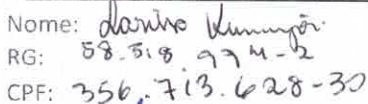 Nome:
RG: 58.518.994-2
CPF: 356.713.628-30